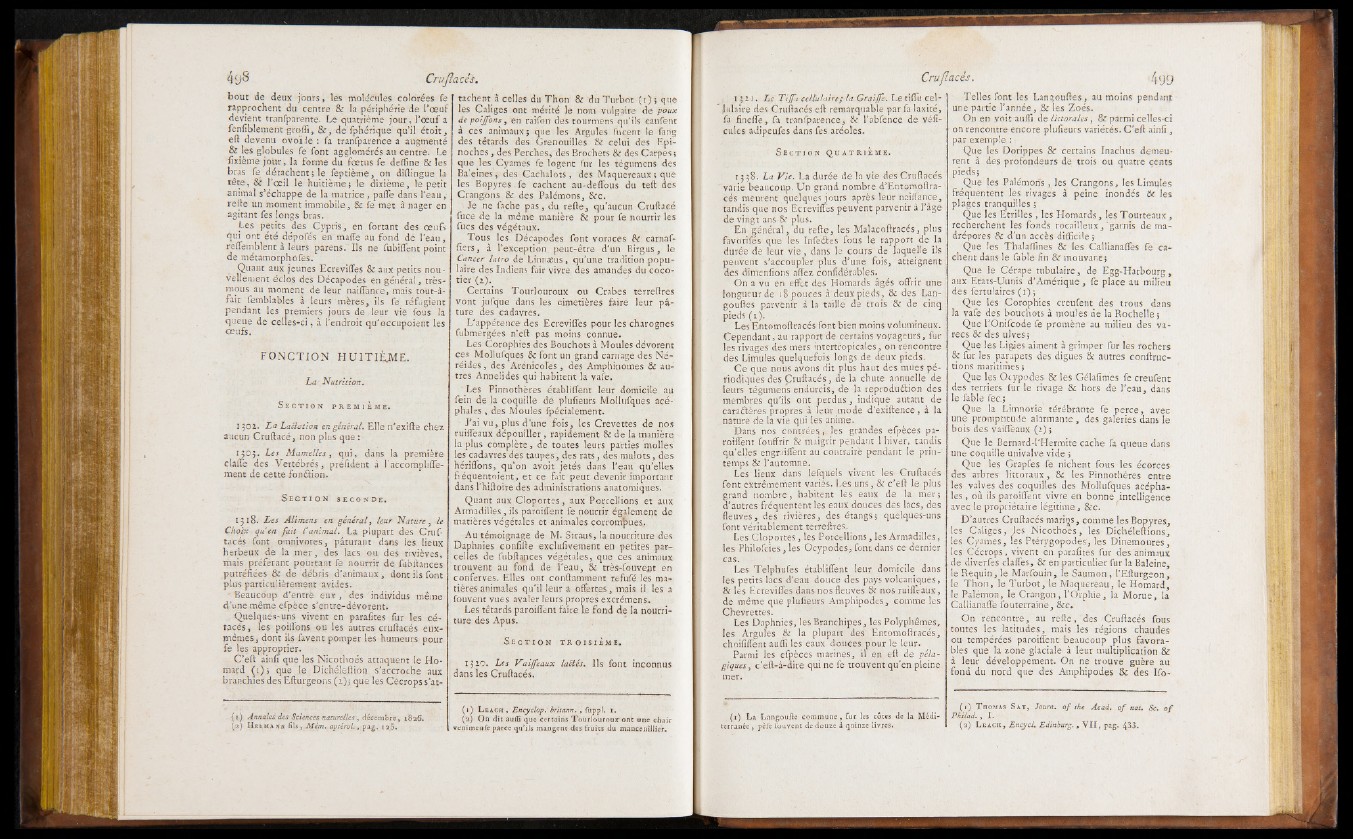 498
Crustacés.
bout de deux jours, les molécules colorées se
rapprochent du centre & la périphérie de l'œuf
devient tranſparente. Le quatrième jour, l'œuf a
ſenſiblement groſſi, &, de ſphérique qu'il étoit,
eſt devenu ovoïde : ſa tranſparence a augmenté
& les globules ſe ſont agglomérés au centre. Le
ſixième jour, la forme du fœtus ſe deſſine & les
bras ſe détachent; le ſeptième, on diſtingue la
tête, & l'œil le huitième; le dixième, le petit
animal s'échappe de la matrice, paſſe dans l'eau,
reſte un moment immobile, & ſe met à nager en
agitant ſes longs bras.
Les petits des Cypris, en ſortant des œufs
qui ont été dépoſés en maſſe au fond de l'eau,
reſſemblent à leurs parens. Ils ne ſubiſſent point
de métamorphoſes.
Quant aux jeunes Ecreviſſes & aux petits nou-
vellement éclos des Décapodes en général, très-
mous au moment de leur naiſſance, mais tout-à-
fait ſemblables à leurs mères, ils ſe réfugient
pendant les premiers jours de leur vie ſous la
queue de celles-ci, à l'endroit qu'occupoient les
œufs.
FONCTION HUITIÈME.
La Nutrition.
SECTION PREMIÈME.
1302. La Lactation en général. Elle n'exiſte chez
aucun Cruſtacé, non plus que :
1303. Les Mamelles, qui, dans la première
claſſe des Vertébrés, préſident à l'accompliſſe-
ment de cette fonction.
SECTION SECONDE.
1318. Les Alimens en général, leur Nature, le
Choix qu'en fait l'animal. La plupart des Cruſ-
tacés ſont omnivores, pâturant dans les lieux
herbeux de la mer, des lacs ou des rivières,
mais préférant pourtant ſe nourrir de ſubſtances
putréfiées & de débris d'animaux, dont ils ſont
plus particulièrement avides.
Beaucoup d'entre eux, des individus même
d'une même eſpèce s'entre-dévorent.
Quelques-uns vivent en paraſites ſur les cé-
tacés, les poiſſons ou les autres cruſtacés eux-
mêmes, dont ils ſavent pomper les humeurs pour
ſe les approprier.
C'eſt ainſi que les Nicothoés attaquent le Ho-
mard (1); que le Dichéleſtion s'accroche aux
branchies des Eſturgeons (2); que les Cécrops s'at-
(1) Annales des Sciences naturelles, décembre, 1826.
(2) HERMANN fils, Mém. aptérol., pag. 125.
tachent à celles du Thon & du Turbot (1); que
les Caliges ont mérité le nom vulgaire de poux
de poiſſons, en raiſon des tourmens qu'ils cauſent
à ces animaux; que les Argules ſucent le ſang
des têtards des Grenouilles & celui des Epi-
noches, des Perches, des Brochets & des Carpes;
que les Cyames ſe logent ſur les tégumens des
Baleines, des Cachalots, des Maquereaux; que
les Bopyres ſe cachent au-deſſous du teſt des
Crangons & des Palémons, &c.
Je ne ſache pas, du reſte, qu'aucun Cruſtacé
ſuce de la même manière & pour ſe nourrir les
ſucs des végétaux.
Tous les Décapodes ſont voraces & carnaſ-
ſiers, à l'exception peut-être d'un Birgus, le
Cancer latro de Linnæus, qu'une tradition popu-
laire des Indiens fait vivre des amandes du coco-
tier (2).
Certains Tourlouroux ou Crabes terreſtres
vont juſque dans les cimetières faire leur pâ-
ture des cadavres.
L'appétence des Ecreviſſes pour les charognes
ſubmergées n'eſt pas moins connue.
Les Corophies des Bouchots à Moules dévorent
ces Molluſques & font un grand carnage des Né-
réides, des Arénicoles, des Amphinomes & au-
tres Annelides qui habitent la vaſe.
Les Pinnothères établiſſent leur domicile au
ſein de la coquille de pluſieurs Molluſques acé-
phales, des Moules ſpécialement.
J'ai vu, plus d'une fois, les Crevettes de nos
ruiſſeaux dépouiller, rapidement & de la manière
la plus complète, de toutes leurs parties molles
les cadavres des taupes, des rats, des mulots, des
hériſſons, qu'on avoit jetés dans l'eau qu'elles
fréquentoient, et ce fait peut devenir important
dans l'hiſtoire des adminiſtrations anatomiques.
Quant aux Cloportes, aux Porcellions et aux
Armadilles, ils paroiſſent ſe nourrir également de
matières végétales et animales corrompues.
Au témoignage de M. Straus, la nourriture des
Daphnies conſiſte excluſivement en petites par-
celles de ſubſtances végétales, que ces animaux
trouvent au fond de l'eau, & très-ſouvent en
conferves. Elles ont conſtamment refuſé les ma-
tières animales qu'il leur a offertes, mais il les a
ſouvent vues avaler leurs propres excrémens.
Les têtards paroiſſent faire le fond de la nourri-
ture des Apus.
SECTION TROISIÈME.
1320. Les Vaiſſeaux lactés. Ils ſont inconnus
dans les Cruſtacés.
(1) LEACH, Encyclop. britann., ſuppl. 1.
(2) On dit auſſi que certains Tourlouroux ont une chair
venimeuſe parce qu'ils mangent des fruits du mancenillier.
Crustacés.
499
1321. Le Tiſſu cellulaire; la Graiſſe. Le tiſſu cel-
lulaire des Cruſtacés eſt remarquable par ſa laxité,
ſa fineſſe, ſa tranſparence, & l'abſence de véſi-
cules adipeuſes dans ſes aréoles.
SECTION QUATRIÈME.
1328. La Vie. La durée de la vie des Cruſtacés
varie beaucoup. Un grand nombre d'Entomoſtra-
cés meurent quelques jours après leur naiſſance,
tandis que nos Ecreviſſes peuvent parvenir à l'âge
de vingt ans & plus.
En général, du reſte, les Malacoſtracés, plus
favoriſés que les Inſectes ſous le rapport de la
durée de leur vie, dans le cours de laquelle ils
peuvent s'accoupler plus d'une fois, atteignent
des dimenſions aſſez conſidérables.
On a vu en effet des Homards âgés offrir une
longueur de 18 pouces à deux pieds, & des Lan-
gouſtes parvenir à la taille de trois & de cinq
pieds (1).
Les Entomoſtracés ſont bien moins volumineux.
Cependant, au rapport de certains voyageurs, ſur
les rivages des mers intertropicales, on rencontre
des Limules quelquefois longs de deux pieds.
Ce que nous avons dit plus haut des mues pé-
riodiques des Cruſtacés, de la chute annuelle de
leurs tégumens endurcis, de la reproduction des
membres qu'ils ont perdus, indique autant de
caractères propres à leur mode d'exiſtence, à la
nature de la vie qui les anime.
Dans nos contrées, les grandes eſpèces pa-
roiſſent ſouffrir & maigrir pendant l'hiver, tandis
qu'elles engraiſſent au contraire pendant le prin-
temps & l'automne.
Les lieux dans leſquels vivent les Cruſtacés
ſont extrêmement variés. Les uns, & c'eſt le plus
grand nombre, habitent les eaux de la mer;
d'autres fréquentent les eaux douces des lacs, des
fleuves, des rivières, des étangs; quelques-uns
ſont véritablement terreſtres.
Les Cloportes, les Porcellions, les Armadilles,
les Philoſcies, les Ocypodes, ſont dans ce dernier
cas.
Les Telphuſes établiſſent leur domicile dans
les petits lacs d'eau douce des pays volcaniques,
& les Ecreviſſes dans nos fleuves & nos ruiſſeaux,
de même que pluſieurs Amphipodes, comme les
Chevrettes.
Les Daphnies, les Branchipes, les Polyphêmes,
les Argules & la plupart des Entomoſtracés,
choiſiſſent auſſi les eaux douces pour le leur.
Parmi les eſpèces marines, il en eſt de péla-
giques, c'eſt-à-dire qui ne ſe trouvent qu'en pleine
mer.
(1) La Langouſte commune, ſur les côtes de la Médi-
terranée, pèſe ſouvent de douze à quinze livres.
Telles ſont les Langouſtes, au moins pendant
une partie l'année, & les Zoés.
On en voit auſſi de littorales, & parmi celles-ci
on rencontre encore pluſieurs variétés. C'eſt ainſi,
par exemple :
Que les Dorippes & certains Inachus demeu-
rent à des profondeurs de trois ou quatre cents
pieds;
Que les Palémons, les Crangons, les Limules
fréquentent les rivages à peine inondés & les
plages tranquilles;
Que les Etrilles, les Homards, les Tourteaux,
recherchent les fonds rocailleux, garnis de ma-
drépores & d'un accès difficile;
Que les Thalaſſines & les Callianaſſes ſe ca-
chent dans le ſable fin & mouvant;
Que le Cérape tubulaire, de Egg-Harbourg,
aux Etats-Uunis d'Amérique, ſe place au milieu
des ſertulaires (1);
Que les Corophies creuſent des trous dans
la vaſe des bouchots à moules de la Rochelle;
Que l'Oniſcode ſe promène au milieu des va-
recs & des ulves;
Que les Ligies aiment à grimper ſur les rochers
& ſur les parapets des digues & autres conſtruc-
tions maritimes;
Que les Ocypodes & les Gélaſimes ſe creuſent
des terriers ſur le rivage & hors de l'eau, dans
le ſable ſec;
Que la Limnorie térébrante ſe perce, avec
une promptitude alarmante, des galeries dans le
bois des vaiſſeaux (2);
Que le Bernard-l'Hermite cache ſa queue dans
une coquille univalve vide;
Que les Grapſes ſe nichent ſous les écorces
des arbres littoraux, & les Pinnothères entre
les valves des coquilles des Molluſques acépha-
les, où ils paroiſſent vivre en bonne intelligence
avec le propriétaire légitime, &c.
D'autres Cruſtacés marins, comme les Bopyres,
les Caliges, les Nicothoés, les Dichéleſtions,
les Cyames, les Ptérygopodes, les Dinemoures,
les Cécrops, vivent en paraſites ſur des animaux
de diverſes claſſes, & en particulier ſur la Baleine,
le Requin, le Marſouin, le Saumon, l'Eſturgeon,
le Thon, le Turbot, le Maquereau, le Homard,
le Palemon, le Crangon, l'Orphie, la Morue, la
Callianaſſe ſouterraine, &c.
On rencontre, au reſte, des Cruſtacés ſous
toutes les latitudes, mais les régions chaudes
ou tempérées paroiſſent beaucoup plus favora-
bles que la zone glaciale à leur multiplication &
à leur développement. On ne trouve guère au
fond du nord que des Amphipodes & des Iſo-
(1) THOMAS SAY, Journ. of the Acad. of nat. Sc. of
Philad., I.
(2) LEACH, Encycl. Edinburg., VII, pag. 433.